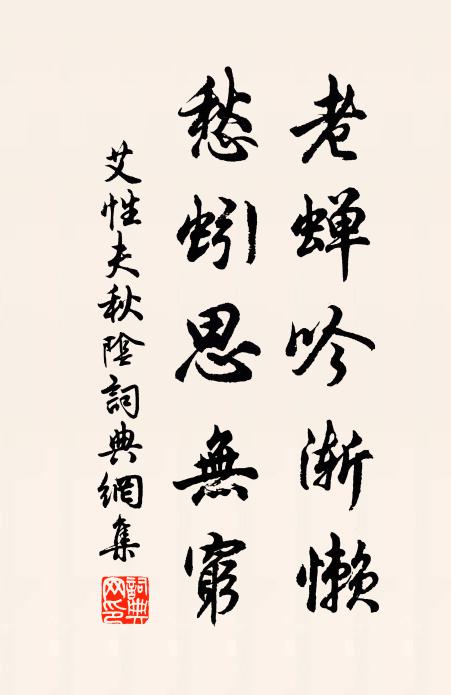 老蝉吟漸懶
愁蚓思無窮
艾性夫秋陰詞典網集
詞典网印